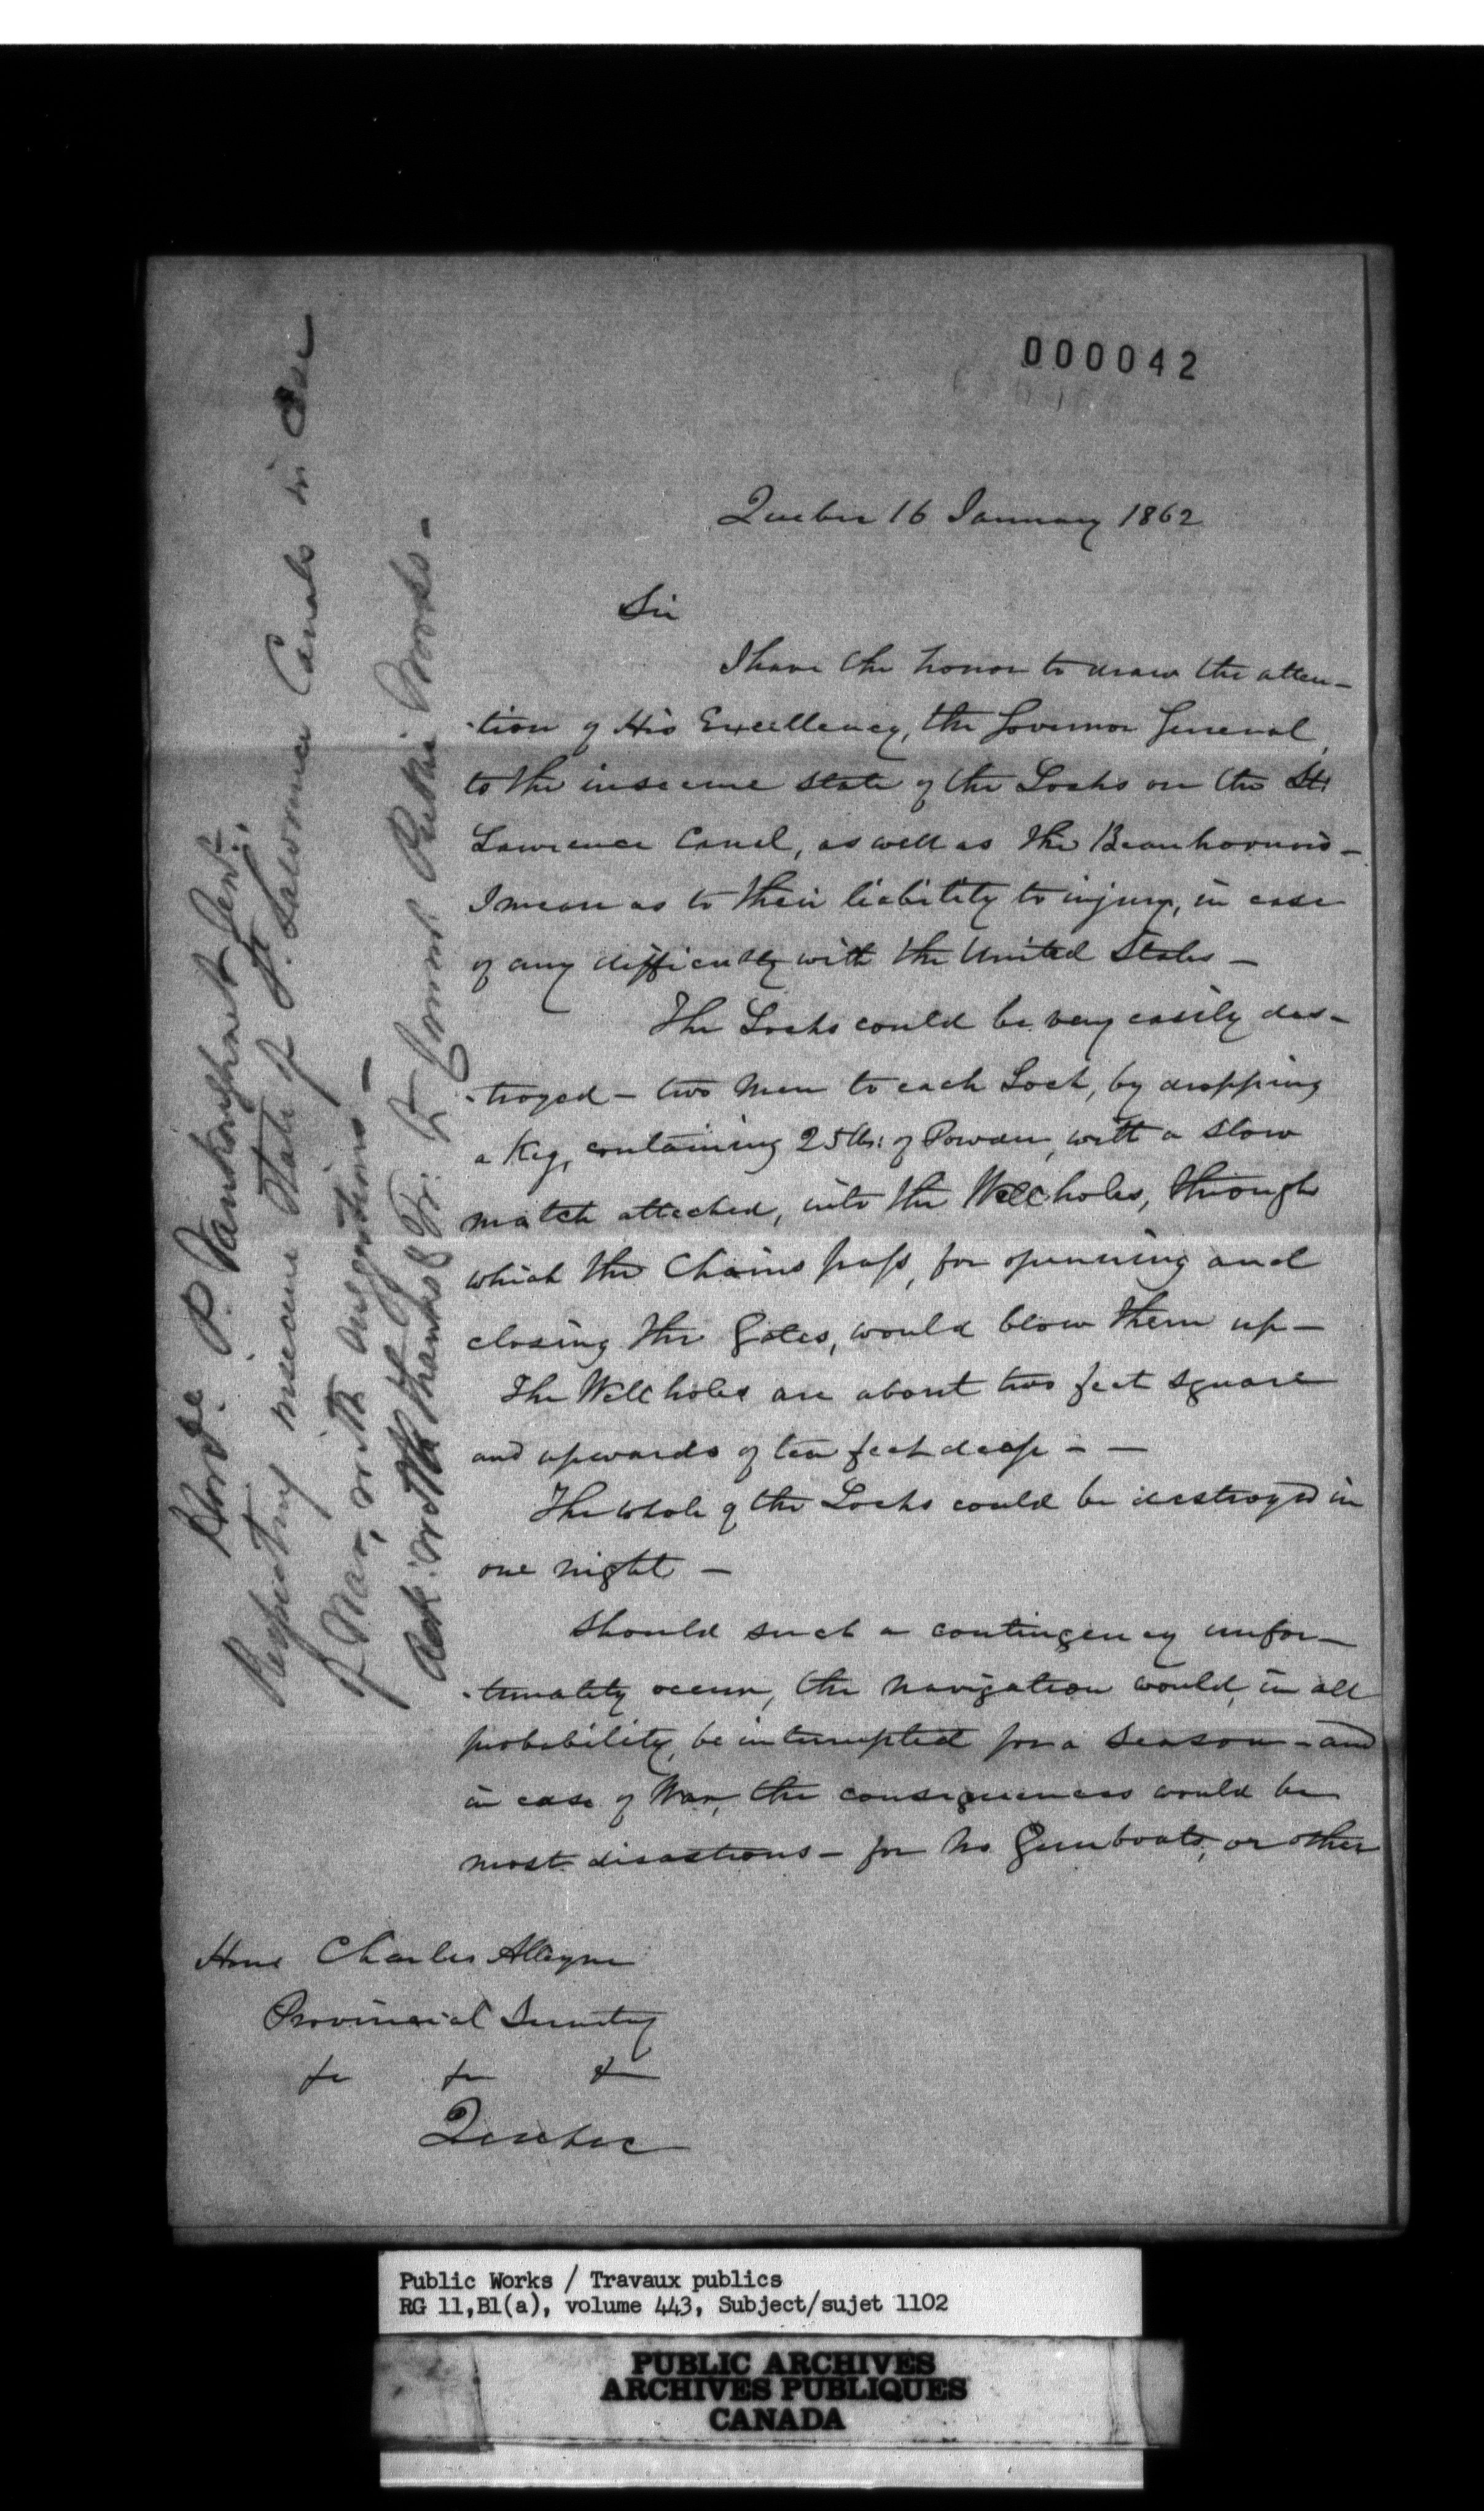 000042
Quebec 16 January 1862
Sir
I have the honor to draw the atten-
-tion of His Excellency, the Governor General,
to the insecure state of the Locks on the St.
Lawrence Canal, as well as the Beauharnois -
I mean as to their liability to injury, in case
of any difficulty with the United States -
The Locks could be very easily des-
-troyed - two men to each Lock, by dropping
a Keg, containing 25 lbs: of Powder, with a slow
match attached, into the Well holes, through
which the Chains pass, for openning and
closing the Gates, would blow them up -
The Well holes are about two feet square
and upwards of ten feet deep - -
The whole of the Locks could be destroyed in
one night -
Should such a contingency unfor-
-tunately occur, the navigation would, in all
probability, be interrupted for a season - and
in case of War, the consequences would be
most disastrous - for no Gunboats, or other
Honl Charles Alleyn
Provincial Secretary
&c &c &c
Quebec
Honble P. Vankoughnet Senr.
Respecting insecure State of St. Lawrence Canals in Case
of War, with suggestions -
Ack: with thanks & Tr. to Commr Public Works -
Public Works / Travaux publics
RG 11,B1(a), volume 443, Subject/sujet 1102
PUBLIC ARCHIVES
ARCHIVES PUBLIQUES
CANADA